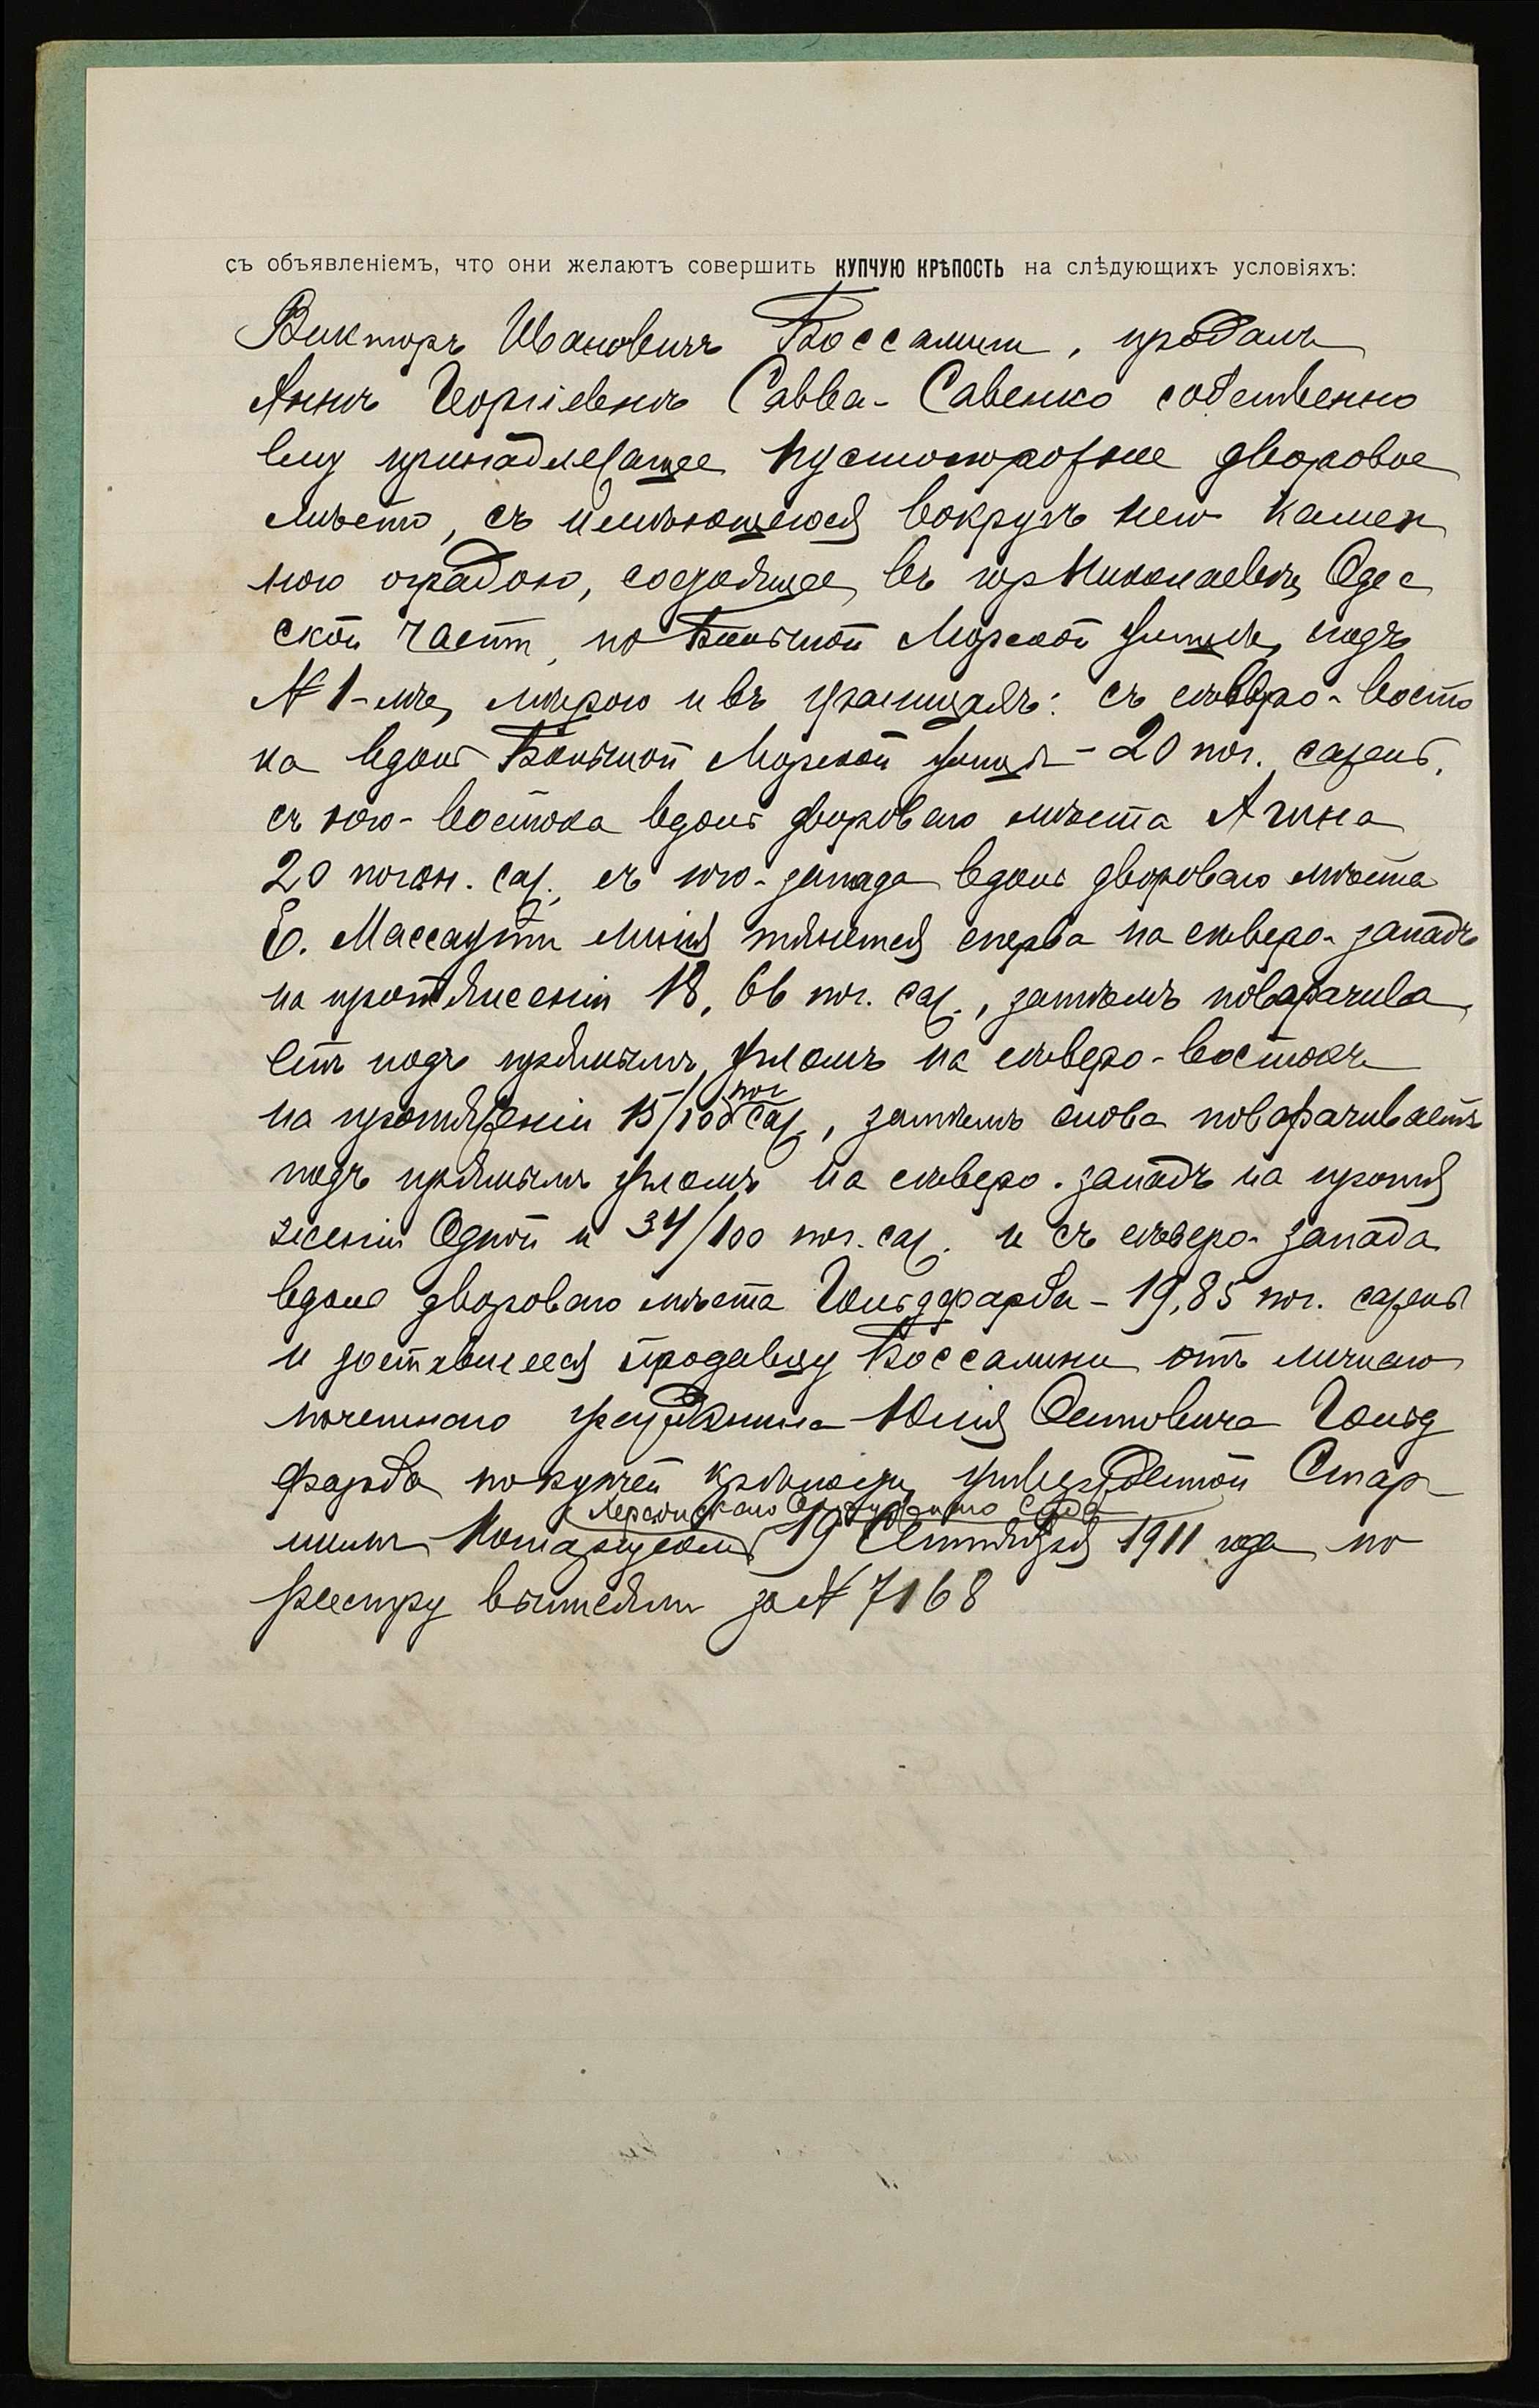 съ объявленіемъ, что они желаютъ совершить КУПЧУЮ КРѢПОСТЬ на слѣдующихъ условіяхъ:
Викторъ Ивановичъ Боссалини, продалъ
Аннѣ Георгіевнѣ Савва-Савенко собственно
ему принадлежащее пустопорожнее дворовое
мѣсто, съ имѣющеюся вокругъ него камен
ною оградою, состоящее въ гор Николаевѣ, Одес
ской части, по Большой Морской улицѣ, подъ
№ 1-мъ, мѣрою и въ границахъ: съ сѣверо-восто
ка вдоль Большой Морской улицы - 20 пог. сажень,
съ юго-востока вдоль двороваго мѣста Агина
20 погон. саж., съ юго-запада вдоль двороваго мѣста
Е. Массаути линія тянется сперва на сѣверо-западъ
на протяженіи 18,66 пог. саж., затѣмъ поварачива
етъ подъ прямымъ угломъ на сѣверо-востокъ
на протяженіи 15/100 пог саж., затѣмъ снова поварачиваетъ
подъ прямымъ угломъ на сѣверо-западъ на протя
женіи Одной и 34/100 пог. саж. и съ сѣверо-запада
вдоль двороваго мѣста Гольдфарба - 19,85 пог. сажень
и доставшееся продавцу Боссалини отъ личнаго
почетнаго гражданина Юлія Осиповича Гольд
фарба по купчей крѣпости, утвержденной Стар
Херсонскаго Окружнаго Суда
шимъ Нотаріусомъ 19 Сентября 1911 года по
реестру выписямъ за № 7168